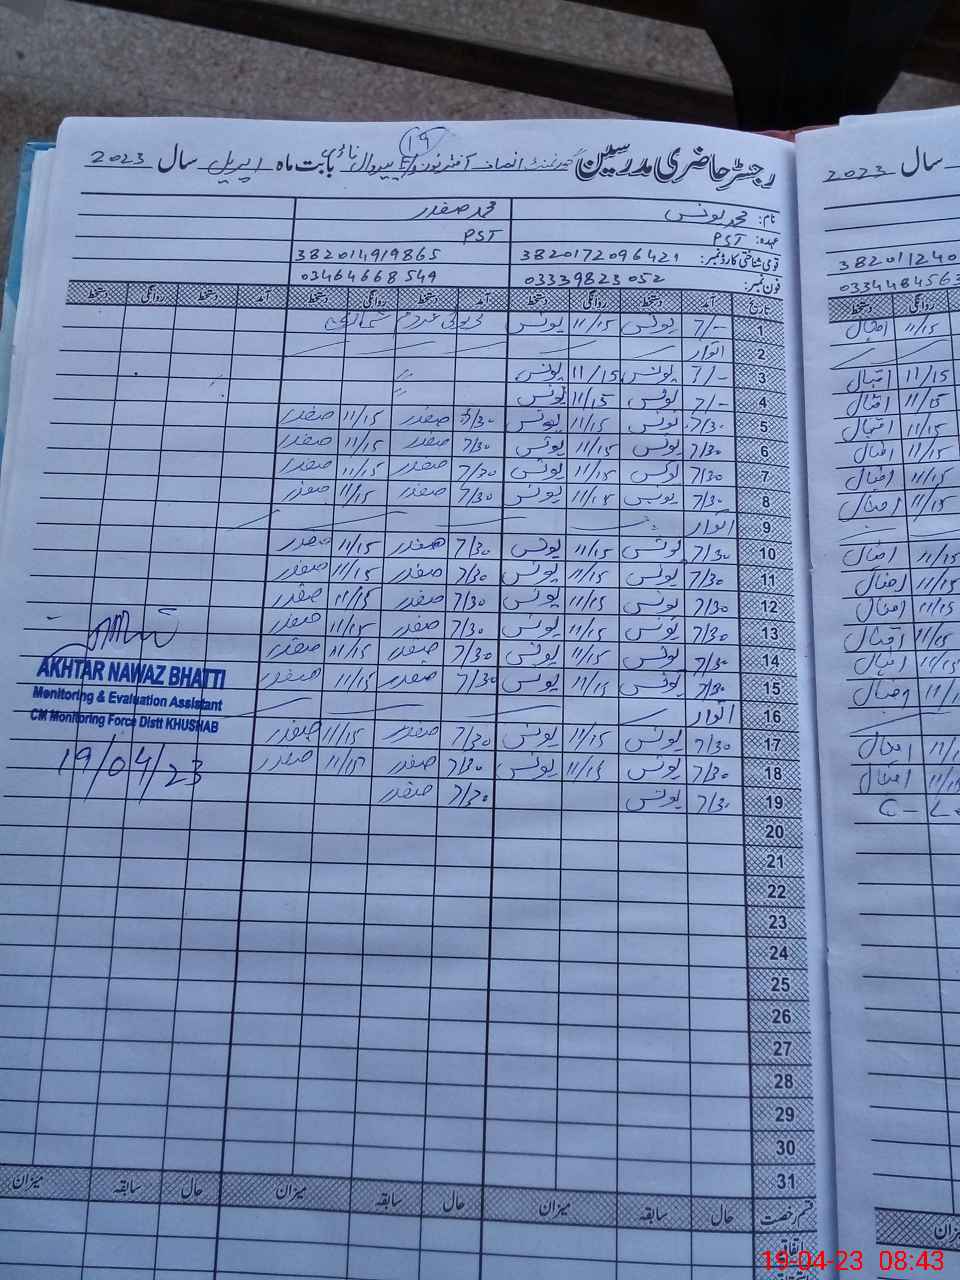 ۱۹
رجسٹر حاضری مدرسین گورنمنٹ انصاف آفٹرنون بابت ماہ اپریل سال 2023
نام: محمد یونس محمد صفدر
عہدہ: PST PST
قومی شناختی کارڈ نمبر: 3820172096421 382014919865
فون نمبر: 03339823052 03464668549
تاریخ آمد دستخط روانگی دستخط آمد دستخط روانگی دستخط آمد دستخط روانگی دستخط
1 7/- یونس 11/15 یونس
2 اتوار
3 7/- یونس 11/15 یونس
4 7/- یونس 11/15 یونس
5 7/30 یونس 11/15 یونس صفدر 11/15 صفدر
6 7/30 یونس 11/15 یونس 7/30 صفدر 11/15 صفدر
7 7/30 یونس 11/15 یونس 7/30 صفدر 11/15 صفدر
8 7/30 یونس 11/15 یونس 7/30 صفدر 11/15 صفدر
9 اتوار
10 7/30 یونس 11/15 یونس 7/30 صفدر 11/15 صفدر
11 7/30 یونس 11/15 یونس 7/30 صفدر 11/15 صفدر
12 7/30 یونس 11/15 یونس 7/30 صفدر 11/15 صفدر
13 7/30 یونس 11/15 یونس 7/30 صفدر 11/15 صفدر
14 7/30 یونس 11/15 یونس 7/30 صفدر 11/15 صفدر
15 7/30 یونس 11/15 یونس 7/30 صفدر 11/15 صفدر
16 اتوار
17 7/30 یونس 11/15 یونس 7/30 صفدر 11/15 صفدر
18 7/30 یونس 11/15 یونس 7/30 صفدر 11/15 صفدر
19 7/30 یونس 7/30 صفدر
20
21
22
23
24
25
26
27
28
29
30
31
قسم رخصت حال سابقہ میزان حال سابقہ میزان حال سابقہ میزان
اتفاقی
AKHTAR NAWAZ BHATTI
Monitoring & Evaluation Assistant
CM Monitoring Force Distt KHUSHAB
19/04/23
سال 2023
روانگی دستخط
11/15 اقبال
11/15 اقبال
11/15 اقبال
11/15 اقبال
11/15 اقبال
11/15 اقبال
11/15 اقبال
11/15 اقبال
11/15 اقبال
11/15 اقبال
19-04-23 08:43